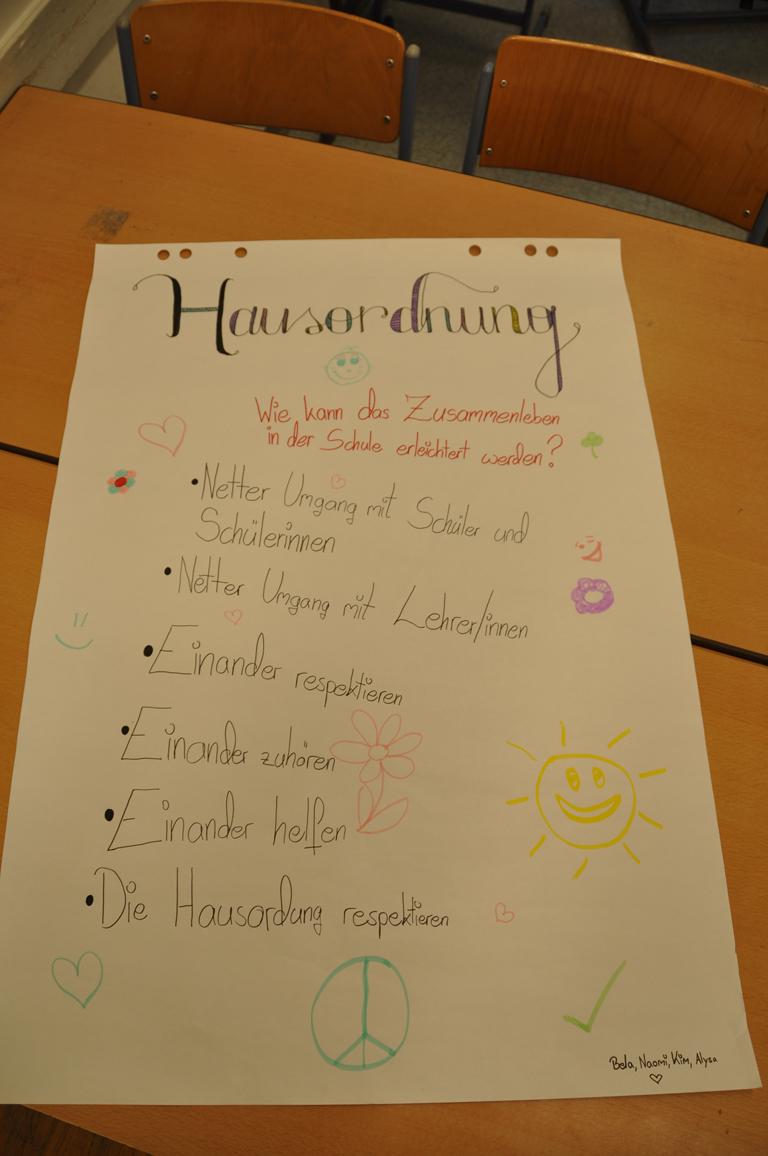 Hausordnung
Wie kann das Zusammenleben
in der Schule erleichtert werden?
• Netter Umgang mit Schüler und
Schülerinnen
• Netter Umgang mit Lehrer/innen
• Einander respektieren
• Einander zuhören
• Einander helfen
• Die Hausordung respektieren
Bela, Naomi, Kim, Alysa